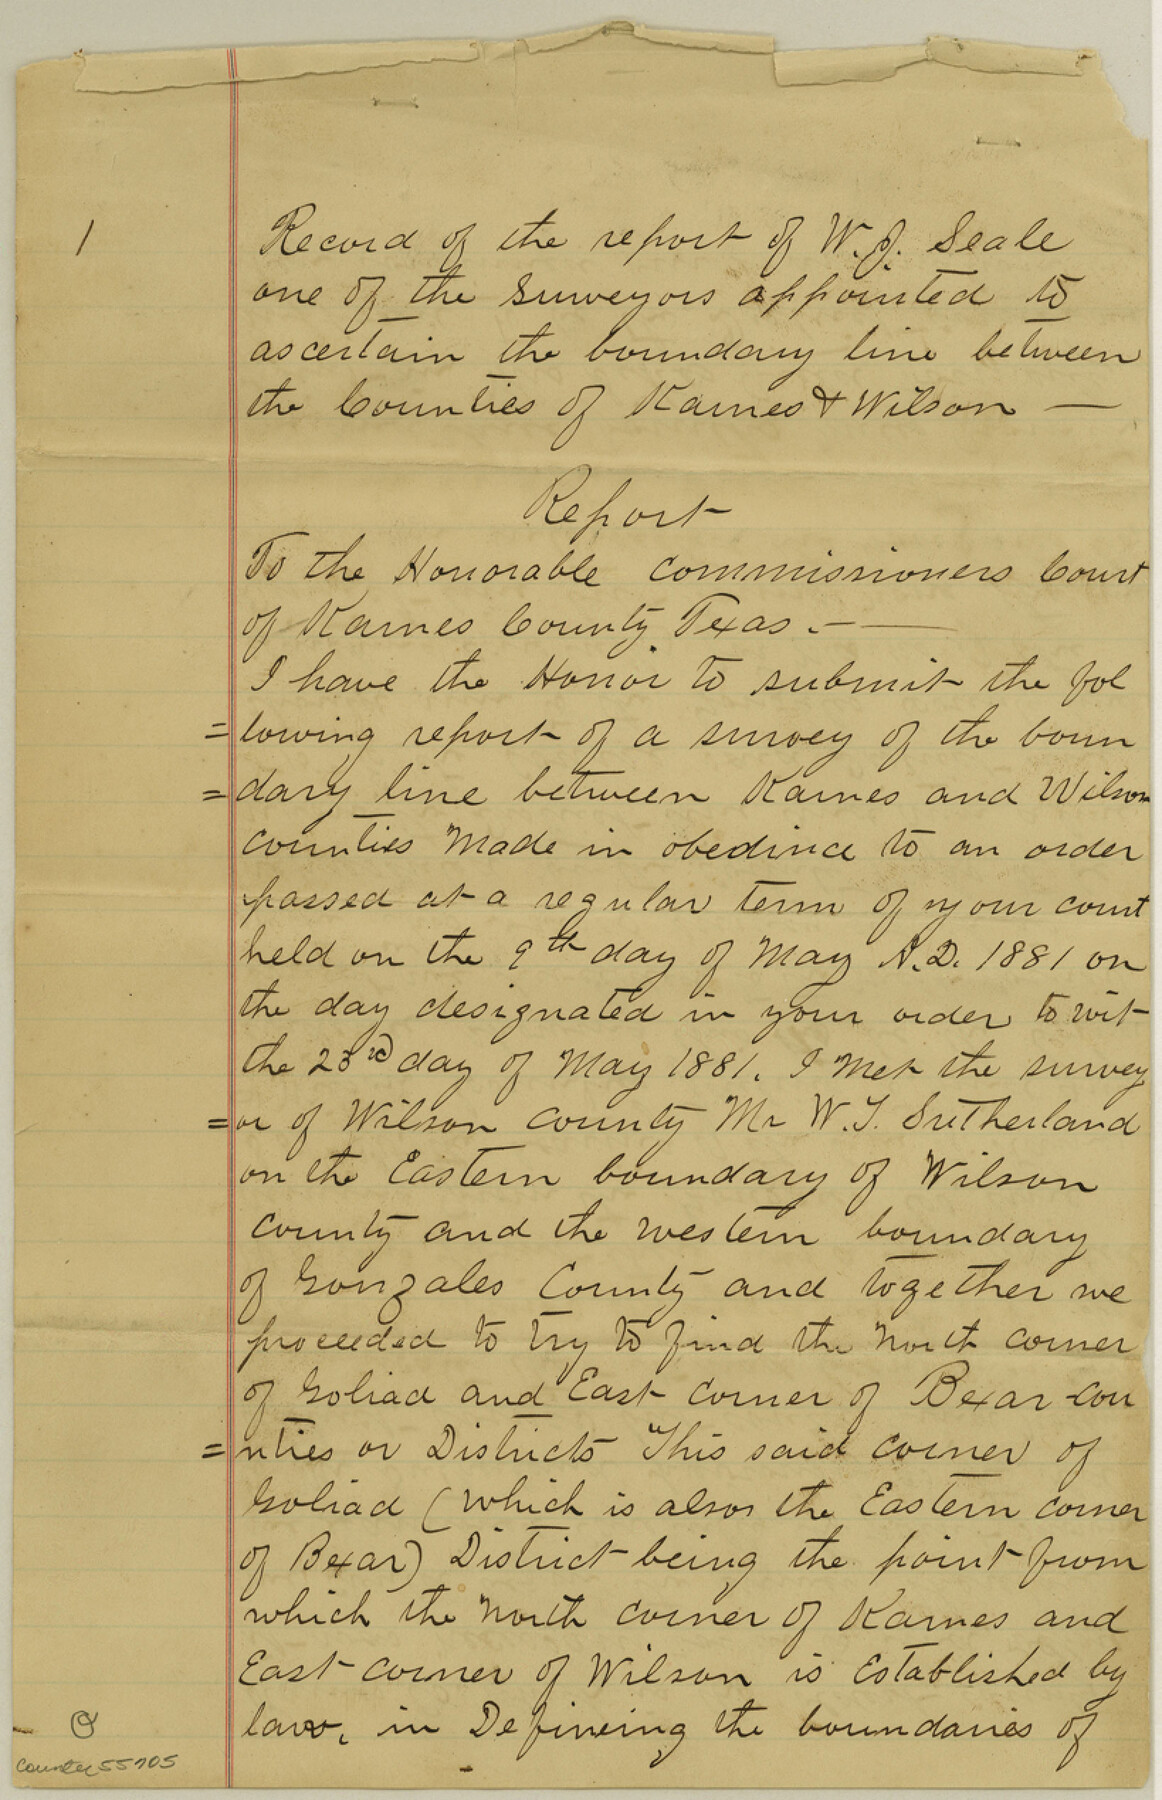 1
Record of the report of W. J. Seale
one of the surveyors appointed to
ascertain the boundary line between
the Counties of Karnes & Wilson —
Report
To the Honorable commissioners Court
of Karnes County Texas. — —
I have the Honor to submit the fol
=lowing report of a survey of the boun
=dary line between Karnes and Wilson
counties Made in obedince to an order
passed at a regular term of your court
held on the 9th day of May A.D. 1881 on
the day designated in your order to wit
the 23rd day of May 1881. I Met the survey
=or of Wilson county Mr W. T. Sutherland
on the Eastern boundary of Wilson
county and the western boundary
of Gonzales County and together we
proceeded to try to find the North corner
of Goliad and East corner of Bexar cou
=nties or Districts This said corner of
Goliad (which is also the Eastern corner
of Bexar) District being the point from
which the North corner of Karnes and
East corner of Wilson is Established by
law, in Defineing the boundaries of
counter 55705